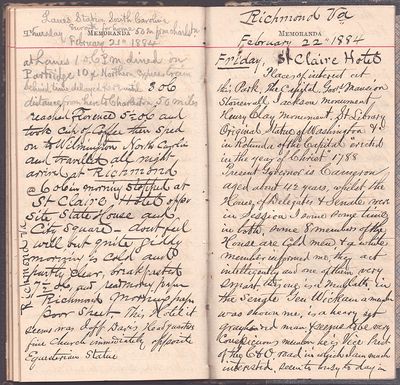 Lanes Station South Carolina
56 m from Charleston
Thursday MEMORANDA
February 21st 1884
at Lanes 1 & 6 PM dined on
Partridge, 10 x Northern Express train
behind time delayed 3.06
distance from here to Charleston, 56 miles
reached Florence 5=06 and
took cup of Coffee then sped
on to Wilmington North Carolina
and traveled all night
arrived at Richmond
@ 6.06 in morning stopped at
St Claire Hotel oppo
site State House and
City Square - don't feel
well but quite giddy
morning is cold and
partly clear, breakfasted
and read morning paper
Richmond
poor Sheet This Hotel it
seems was Jeff Davis Headquarters
fine Church immediately opposite
Equestrian Statue
Richmond Va
Richmond Va
MEMORANDA
February 22nd 1884
Friday, St Claire Hotel
Places of interest at
this Park, The Capitol, Govs Mansion
Stonewall Jackson monument
Henry Clay monument, St Library
Original Statue of Washington &
in Rotunda of the Capitol erected
in the year of Christ 1788
Present Governor is Cameron
aged about 42 years, whilst the
House of Delegates & Senate were
in Session I
in both, some 8 members of the
House are Cold men & a white
member informed me, they act
intelligently and one of them very
smart
the single Gen Wickham a member
was shown me, is a heavy set
gray haired man & seems to be very
conspicuous member he is Vice Prest
of the C&O road in which I am much
interested,